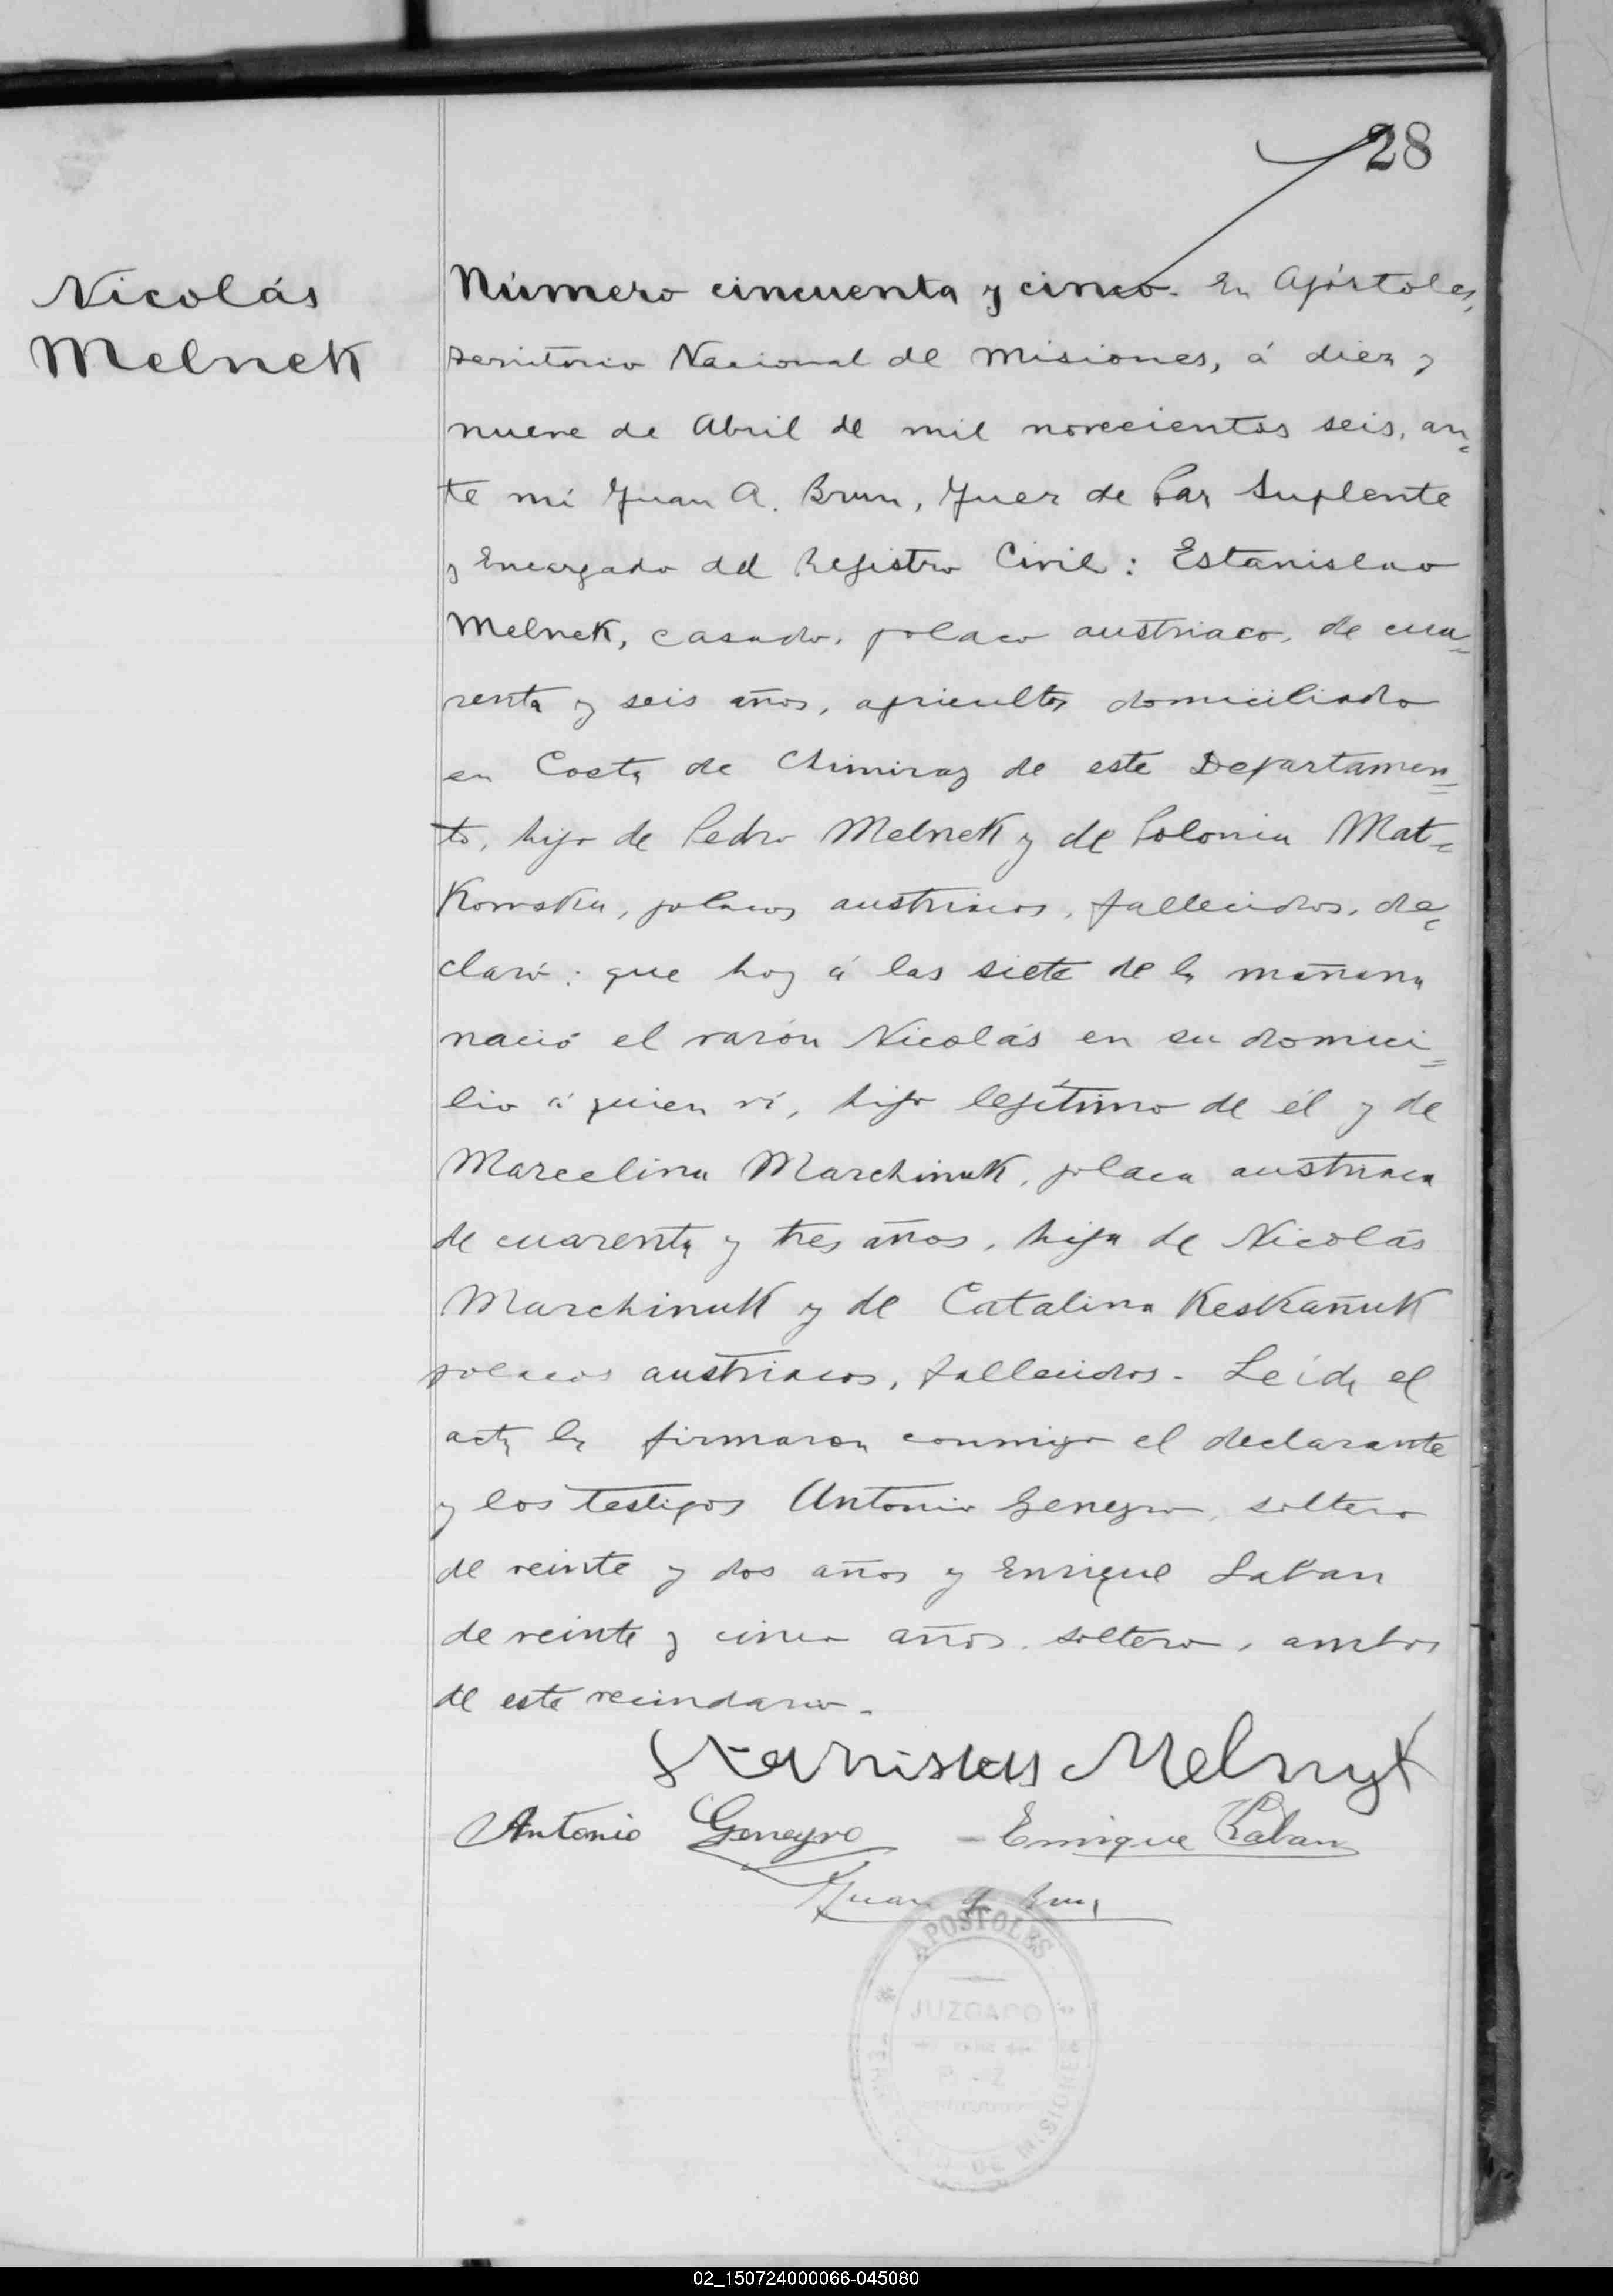 28
Nicolás
Melnek
Número cincuenta y cinco. En Apóstoles,
territorio Nacional de Misiones, á diez y
nueve de Abril de mil novecientos seis, an=
te mi Juan A. Brun, Juez de Paz Suplente
y Encargado del Registro Civil: Estanislao
Melnek, casado, polaco austriaco, de cua=
renta y seis años, agricultor domiciliado
en Costa de Chimiray de este Departamen=
to, hijo de Pedro Melnek y de Polonia Mat=
Kowska, polacos austriacos, fallecidos, de=
claró: que hoy á las siete de la mañana
nació el varón Nicolás en su domici=
lio á quien ví, hijo legítimo de él y de
Marcelina Marchinuk, polaca austriaca
de cuarenta y tres años, hija de Nicolás
Marchinuk y de Catalina Keskañuk
polacos austriacos, fallecidos. Leida el
acta la firmaron conmigo el declarante
y los testigos Antonio Geneyro, soltero
de veinte y dos años y Enrique Laban
de veinte y cinco años, soltero, ambos
de este vecindario.
Stanislaus Melnyk
Antonio Geneyro - Enrique Laban
Juan A. Brun
APOSTOLES
JUZGADO
DE MISIONES
02_150724000066-045080